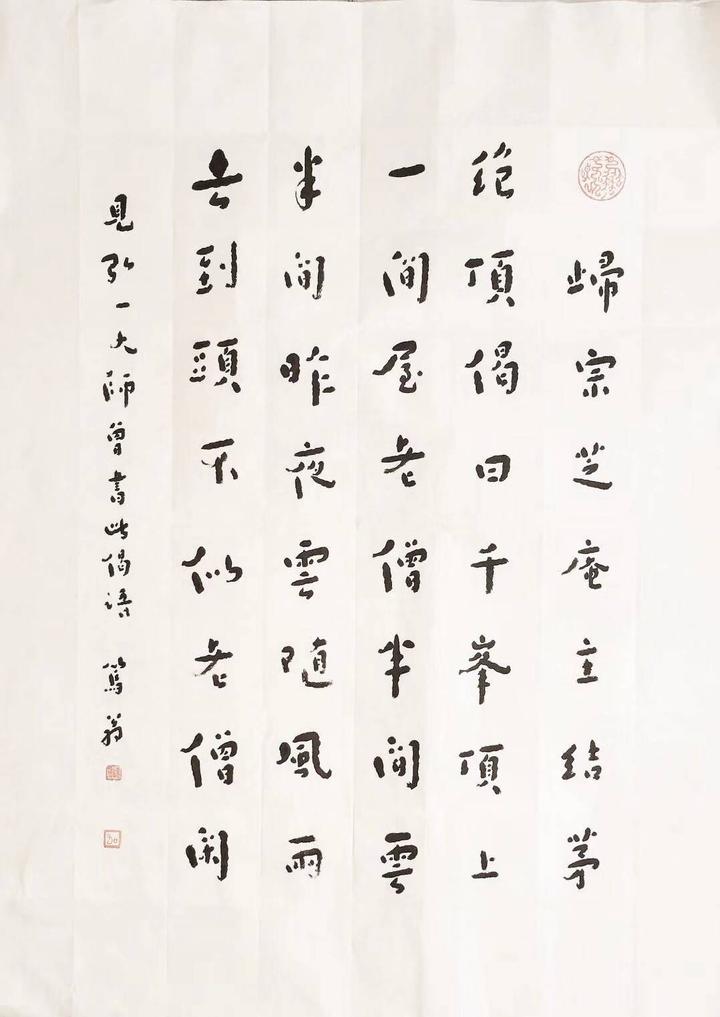 歸宗芝庵主結茅
絶頂偈曰千峯頂上
一間屋老僧半間雲
半間昨夜雲隨風雨
去到頭不似老僧閑
見弘一大師曾書此偈語 篤翁